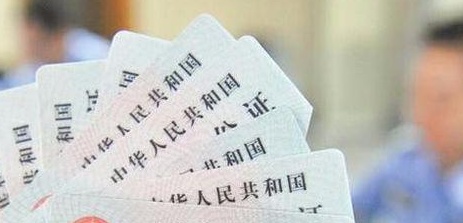 国
中华人民共和国
中华人民共和国
证
共和国
中华人民共和国